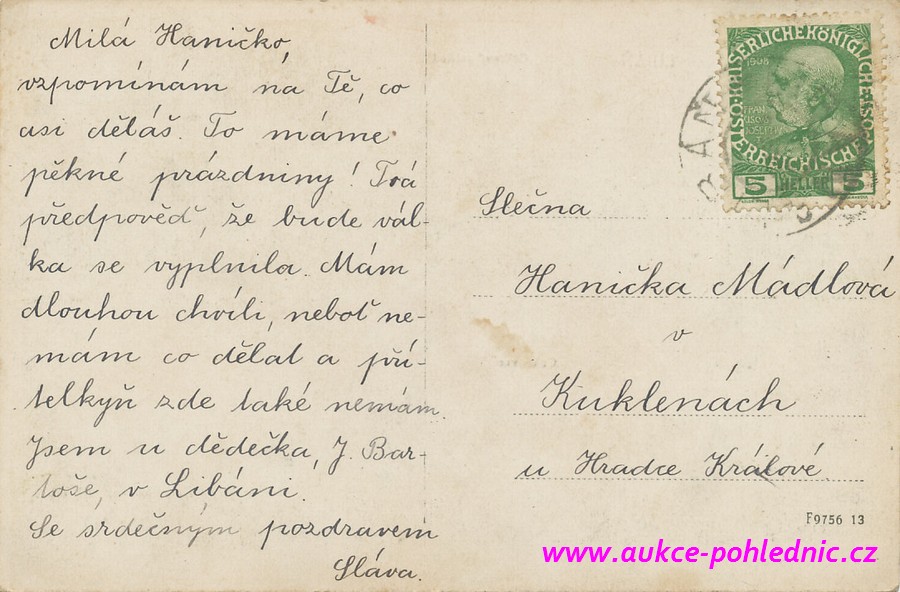 Milá Haničko,
vzpomínám na Tě, co
asi děláš. To máme
pěkné prázdniny! Tvá
předpověď, že bude vál-
ka se vyplnila. Mám
dlouhou chvíli, neboť ne-
mám co dělat a pří-
telkyň zde také nemám.
Jsem u dědečka, J. Bar-
toše, v Libáni.
Se srdečným pozdravem
Sláva.
K.K. OSTERREICHISCHE
1908
FRANZ
JOSEF I
5 HELLER 5
Slečna
Hanička Mádlová
v
Kuklenách
u Hradce Králové
F9756 13
www.aukce-pohlednic.cz